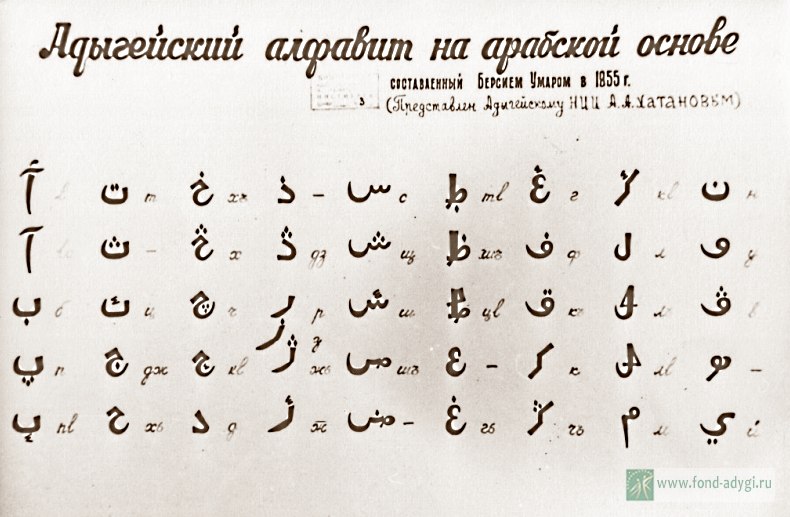 Адыгейский алфавит на арабской основе
составленный Берсием Умаром в 1855 г.
3 (Представлен Адыгейскому НИИ А.А.Хатановым)
آ ت т خ хъ ذ – س с тӏ г кӏ ن н
آ ث – څ х ڎ дз ش щ ظ ف ф ل л و у
ب б ц ч ر р ش ш цӏ ق къ ڤ в
پ п ج дж چ кӏ ژ жь з ص шъ ع – к лӏ –
пӏ ح хь د д ض – غ гъ чъ م м ي й
www.fond-adygi.ru